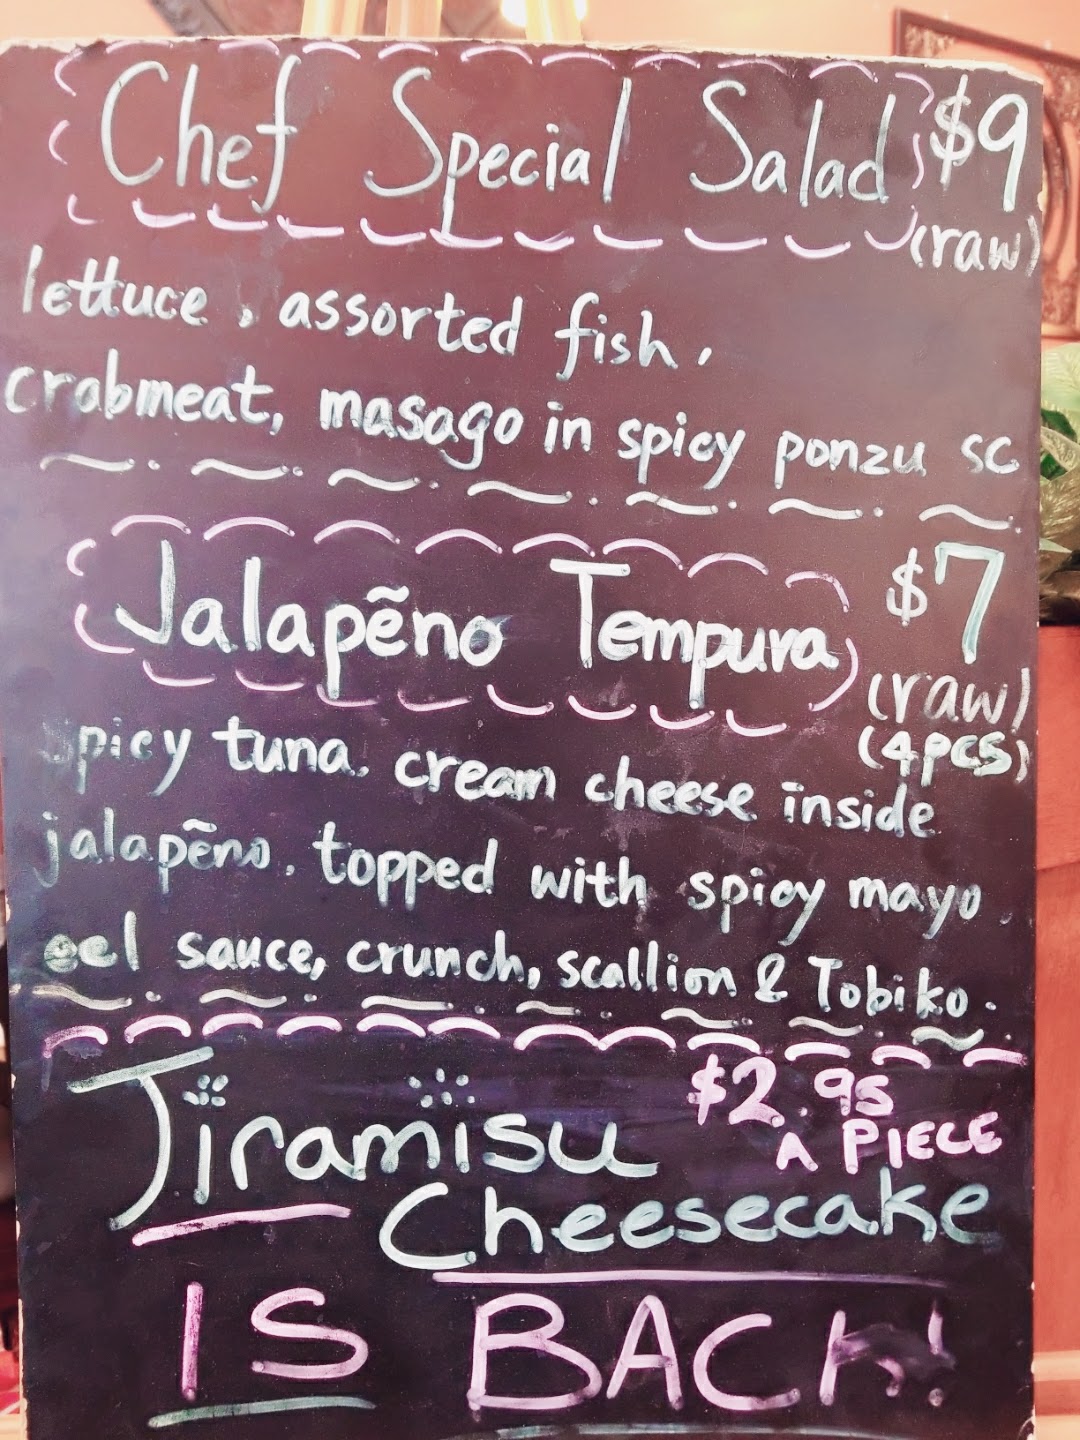 Chef Special Salad $9
(raw)
lettuce, assorted fish,
crabmeat, masago in spicy ponzu sc
Jalapẽno Tempura $7
(raw)
(4pcs)
spicy tuna, cream cheese inside
jalapẽno, topped with spicy mayo,
eel sauce, crunch, scallion & Tobiko.
Tiramisu $2.95
A PIECE
Cheesecake
IS BACK!